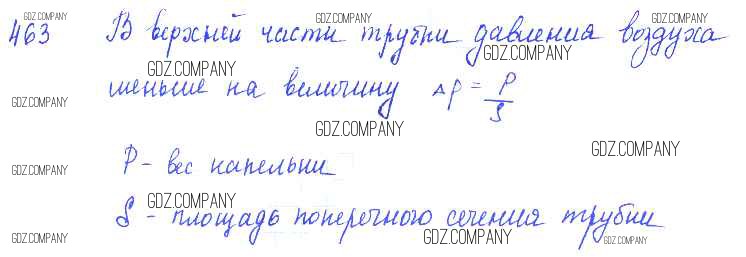 GDZ.COMPANY GDZ.COMPANY GDZ.COMPANY
463 В верхней части трубки давления воздуха
GDZ.COMPANY GDZ.COMPANY
меньше на величину Δp = P/S
GDZ.COMPANY
GDZ.COMPANY
GDZ.COMPANY
P - вес капельки
GDZ.COMPANY
GDZ.COMPANY
S - площадь поперечного сечения трубки
GDZ.COMPANY GDZ.COMPANY GDZ.COMPANY